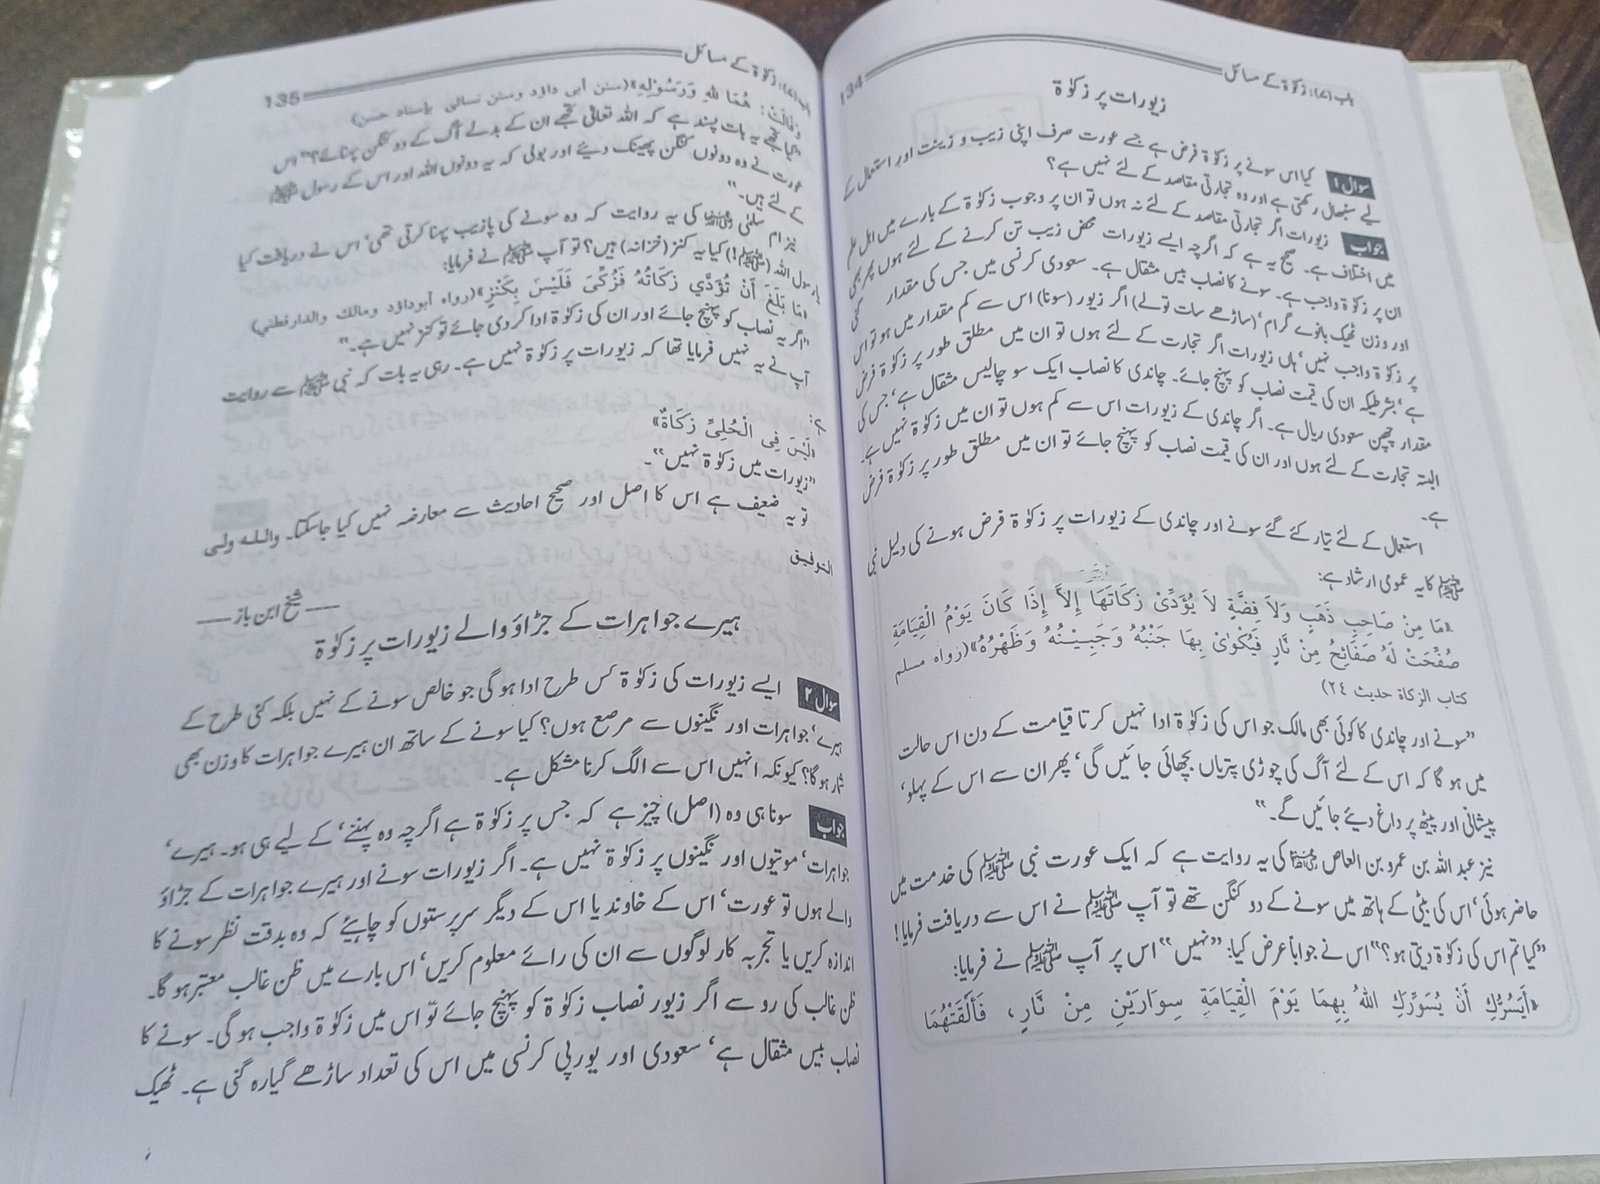 باب (۷)، زکوٰۃ کے مسائل 134
زیورات پر زکوٰۃ
سوال ۱ کیا اس سونے پر زکوٰۃ فرض ہے جسے عورت صرف اپنی زیب و زینت اور استعمال کے
لیے سنبھال رکھتی ہے اور وہ تجارتی مقاصد کے لئے نہیں ہے؟
جواب زیورات اگر تجارتی مقاصد کے لئے نہ ہوں تو ان پر وجوب زکوٰۃ کے بارے میں اہل علم
میں اختلاف ہے۔ صحیح یہ ہے کہ اگرچہ ایسے زیورات محض زیب تن کرنے کے لئے ہوں پھر بھی
ان پر زکوٰۃ واجب ہے۔ سونے کا نصاب بیس مثقال ہے۔ سعودی کرنسی میں جس کی مقدار
اور وزن ٹھیک بانوے گرام‘ (ساڑھے سات تولے) اگر زیور (سونا) اس سے کم مقدار میں ہو تو اس
پر زکوٰۃ واجب نہیں‘ ہاں زیورات اگر تجارت کے لئے ہوں تو ان میں مطلق طور پر زکوٰۃ فرض
ہے‘ بشرطیکہ ان کی قیمت نصاب کو پہنچ جائے۔ چاندی کا نصاب ایک سو چالیس مثقال ہے‘ جس کی
مقدار چھپن سعودی ریال ہے۔ اگر چاندی کے زیورات اس سے کم ہوں تو ان میں زکوٰۃ نہیں ہے۔
البتہ تجارت کے لئے ہوں اور ان کی قیمت نصاب کو پہنچ جائے تو ان میں مطلق طور پر زکوٰۃ فرض
ہے۔
استعمال کے لئے تیار کئے گئے سونے اور چاندی کے زیورات پر زکوٰۃ فرض ہونے کی دلیل نبی
ﷺ کا یہ عمومی ارشاد ہے:
«مَا مِنْ صَاحِبِ ذَهَبٍ وَلاَ فِضَّةٍ لاَ يُؤَدِّيْ زَكَاتَهَا إِلاَّ إِذَا كَانَ يَوْمُ الْقِيَامَةِ
صُفِّحَتْ لَهُ صَفَائِحُ مِنْ نَّارٍ فَيُكْوىٰ بِهَا جَنْبُهُ وَجَبِيْنُهُ وَظَهْرُهُ»(رواه مسلم
كتاب الزكاة حديث ٢٤)
”سونے اور چاندی کا کوئی بھی مالک جو اس کی زکوٰۃ ادا نہیں کرتا قیامت کے دن اس حالت
میں ہو گا کہ اس کے لئے آگ کی چوڑی پتریاں بچھائی جائیں گی‘ پھر ان سے اس کے پہلو‘
پیشانی اور پیٹھ پر داغ دیئے جائیں گے۔“
نیز عبداللہ بن عمرو بن العاص رضی اللہ عنہما کی یہ روایت ہے کہ ایک عورت نبی ﷺ کی خدمت میں
حاضر ہوئی‘ اس کی بیٹی کے ہاتھ میں سونے کے دو کنگن تھے تو آپ ﷺ نے اس سے دریافت فرمایا!
”کیا تم اس کی زکوٰۃ دیتی ہو؟“ اس نے جواباً عرض کیا: ”نہیں“ اس پر آپ ﷺ نے فرمایا:
«أَيَسُرُّكِ أَنْ يُسَوِّرَكِ اللهُ بِهِمَا يَوْمَ الْقِيَامَةِ سِوَارَيْنِ مِنْ نَّارٍ، فَأَلْقَتْهُمَا
باب (۷)، زکوٰۃ کے مسائل 135
وَقَالَتْ: هُمَا للهِ وَرَسُوْلِهِ»(سنن أبى داؤد وسنن نسائى بإسناد حسن)
”کیا تجھے یہ بات پسند ہے کہ اللہ تعالیٰ تجھے ان کے بدلے آگ کے دو کنگن پہنائے؟“ اس
عورت نے وہ دونوں کنگن پھینک دیئے اور بولی کہ یہ دونوں اللہ اور اس کے رسول ﷺ
کے لئے ہیں۔“
نیز ام سلمٰی رضی اللہ عنہا کی یہ روایت کہ وہ سونے کی پازیب پہنا کرتی تھی‘ اس نے دریافت کیا
یارسول اللہ (ﷺ!) کیا یہ کنز (خزانہ) ہیں؟ تو آپ ﷺ نے فرمایا:
«مَا بَلَغَ أَنْ تُؤَدِّي زَكَاتُهُ فَزُكِّيَ فَلَيْسَ بِكَنْزٍ»(رواه أبوداؤد ومالك والدارقطني)
”اگر یہ نصاب کو پہنچ جائے اور ان کی زکوٰۃ ادا کر دی جائے تو کنز نہیں ہے۔“
آپ نے یہ نہیں فرمایا تھا کہ زیورات پر زکوٰۃ نہیں ہے۔ رہی یہ بات کہ نبی ﷺ سے روایت
ہے:
«لَيْسَ فِى الْحُلِىِّ زَكَاةٌ»
”زیورات میں زکوٰۃ نہیں“۔
تو یہ ضعیف ہے اس کا اصل اور صحیح احادیث سے معارضہ نہیں کیا جاسکتا۔ واللہ ولی
التوفیق
شیخ ابن باز
ہیرے جواہرات کے جڑاؤ والے زیورات پر زکوٰۃ
سوال ۲ ایسے زیورات کی زکوٰۃ کس طرح ادا ہو گی جو خالص سونے کے نہیں بلکہ کئی طرح کے
ہیرے‘ جواہرات اور نگینوں سے مرصع ہوں؟ کیا سونے کے ساتھ ان ہیرے جواہرات کا وزن بھی
شمار ہو گا؟ کیونکہ انہیں اس سے الگ کرنا مشکل ہے۔
جواب سونا ہی وہ (اصل) چیز ہے کہ جس پر زکوٰۃ ہے اگرچہ وہ پہننے‘ کے لیے ہی ہو۔ ہیرے‘
جواہرات‘ موتیوں اور نگینوں پر زکوٰۃ نہیں ہے۔ اگر زیورات سونے اور ہیرے جواہرات کے جڑاؤ
والے ہوں تو عورت‘ اس کے خاوند یا اس کے دیگر سرپرستوں کو چاہیئے کہ وہ بدقت نظر سونے کا
اندازہ کریں یا تجربہ کار لوگوں سے ان کی رائے معلوم کریں‘ اس بارے میں ظن غالب معتبر ہو گا۔
ظن غالب کی رو سے اگر زیور نصاب زکوٰۃ کو پہنچ جائے تو اس میں زکوٰۃ واجب ہو گی۔ سونے کا
نصاب بیس مثقال ہے‘ سعودی اور یورپی کرنسی میں اس کی تعداد ساڑھے گیارہ گنی ہے۔ ٹھیک